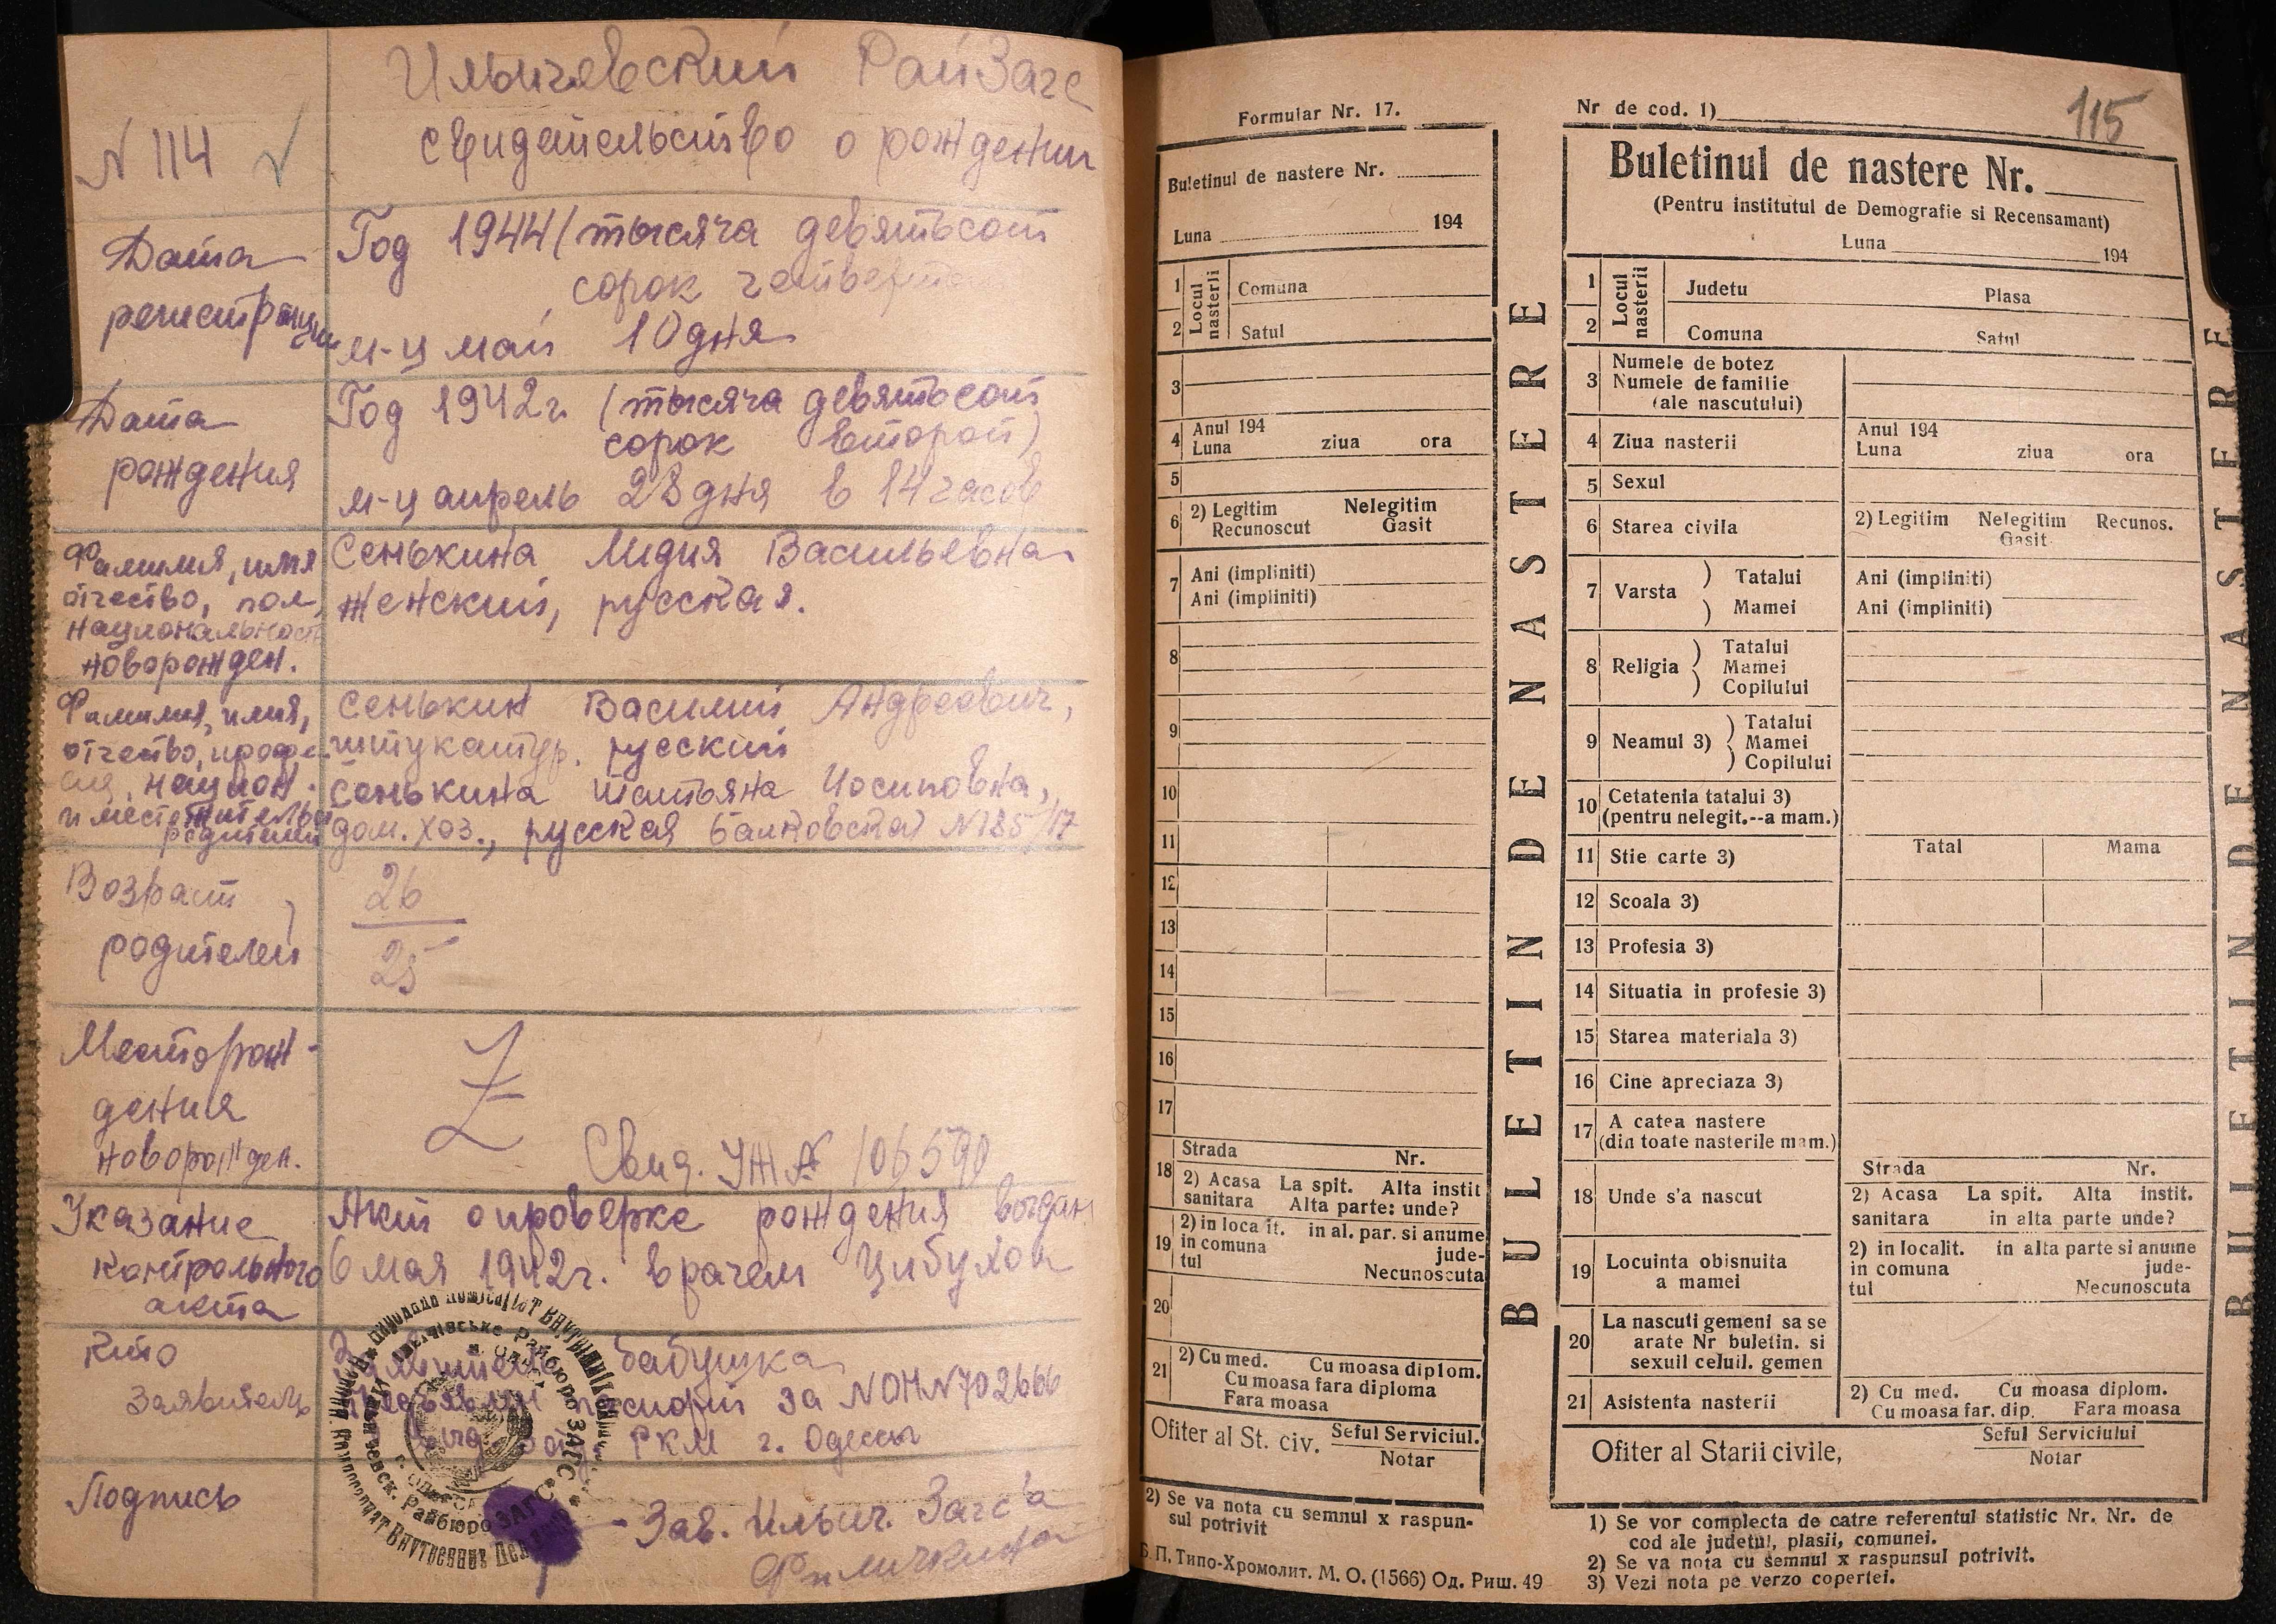 Ильичевский РайЗагс
N 114 свидетельство о рождении
Дата регистрации
Год 1944 (тысяча девятьсот
сорок
м-ц май 10 дня
Дата рождения
Год 1942г. (тысяча девятьсот
сорок второй)
м-ц апрель 28 дня в 14 часов
Фамилия, имя
отчество, пол,
национальность
новорожден.
Сенькина Лидия Васильевна
женский, русская.
Фамилия, имя,
отчество,
национ.
родителей
Сенькин Василий Андреевич,
штукатур. русский
Сенькина Татьяна Иосиповна,
дом. хоз., русская
Возраст
родителей
26
25
Месторож-
дения
новорожден.
Свид. УЖ № 106590
Указание
контрольного
акта
Акт о проверке рождения
6 мая 1942г. врачем
Кто
заявитель
бабушка
паспорт за N
РКМ г. Одессы
Подпись
Зав. Ильич. Загс'а
115
Formular Nr. 17.
Buletinul de nastere Nr.
Luna 194
Locul nasterii
1 Comuna
2 Satul
3
4 Anul 194
Luna ziua ora
5
6 2) Legitim Nelegitim
Recunoscut Gasit
7 Ani (impliniti)
Ani (impliniti)
8
9
10
11
12
13
14
15
16
17
18 Strada Nr.
2) Acasa La spit. Alta instit
sanitara Alta parte: unde?
19 2) in loca it. in al. par. si anume
in comuna jude-
tul Necunoscuta
20
21 2) Cu med. Cu moasa diplom.
Cu moasa fara diploma
Fara moasa
Ofiter al St. civ. Seful Serviciul.
Notar
2) Se va nota cu semnul x raspun-
sul potrivit
П. Типо-Хромолит. М. О. (1566) Од. Риш. 49
BULETIN DE NASTERE
Nr de cod. 1)
Buletinul de nastere Nr.
(Pentru institutul de Demografie si Recensamant)
Luna 194
Locul nasterii
1 Judetu Plasa
2 Comuna Satul
3 Numele de botez
Numele de familie
(ale nascutului)
4 Ziua nasterii Anul 194
Luna ziua ora
5 Sexul
6 Starea civila 2) Legitim Nelegitim Recunos.
Gasit
7 Varsta Tatalui Ani (impliniti)
Mamei Ani (impliniti)
8 Religia Tatalui
Mamei
Copilului
9 Neamul 3) Tatalui
Mamei
Copilului
10 Cetatenia tatalui 3)
(pentru nelegit.--a mam.)
11 Stie carte 3) Tatal Mama
12 Scoala 3)
13 Profesia 3)
14 Situatia in profesie 3)
15 Starea materiala 3)
16 Cine apreciaza 3)
17 A catea nastere
(din toate nasterile mam.)
18 Unde s'a nascut Strada Nr.
2) Acasa La spit. Alta instit.
sanitara in alta parte unde?
19 Locuinta obisnuita
a mamei
2) in localit. in alta parte si anume
in comuna jude-
tul Necunoscuta
20 La nascuti gemeni sa se
arate Nr buletin. si
sexuil celuil. gemen
21 Asistenta nasterii 2) Cu med. Cu moasa diplom.
Cu moasa far. dip. Fara moasa
Ofiter al Starii civile, Seful Serviciului
Notar
1) Se vor complecta de catre referentul statistic Nr. Nr. de
cod ale judetul, plasii, comunei.
2) Se va nota cu semnul x raspunsul potrivit.
3) Vezi nota pe verzo copertei.
BULETIN DE NASTERE